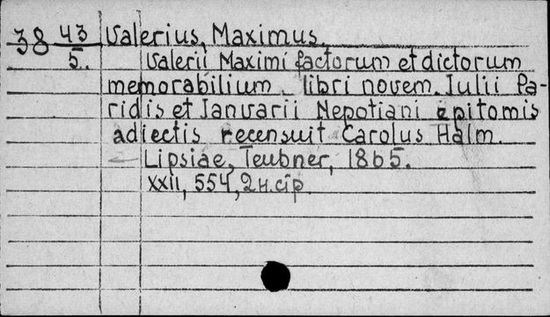 38 43/5. Valerius, Maximus.
Valerii Maximi factorum et dictorum
memorabilium libri novem. Iulii Pa-
ridis et Ianuarii Nepotiani epitomis
adiectis recensuit Carolus Halm.
Lipsiae, Teubner, 1865.
XXII, 554, 2 н. стр.